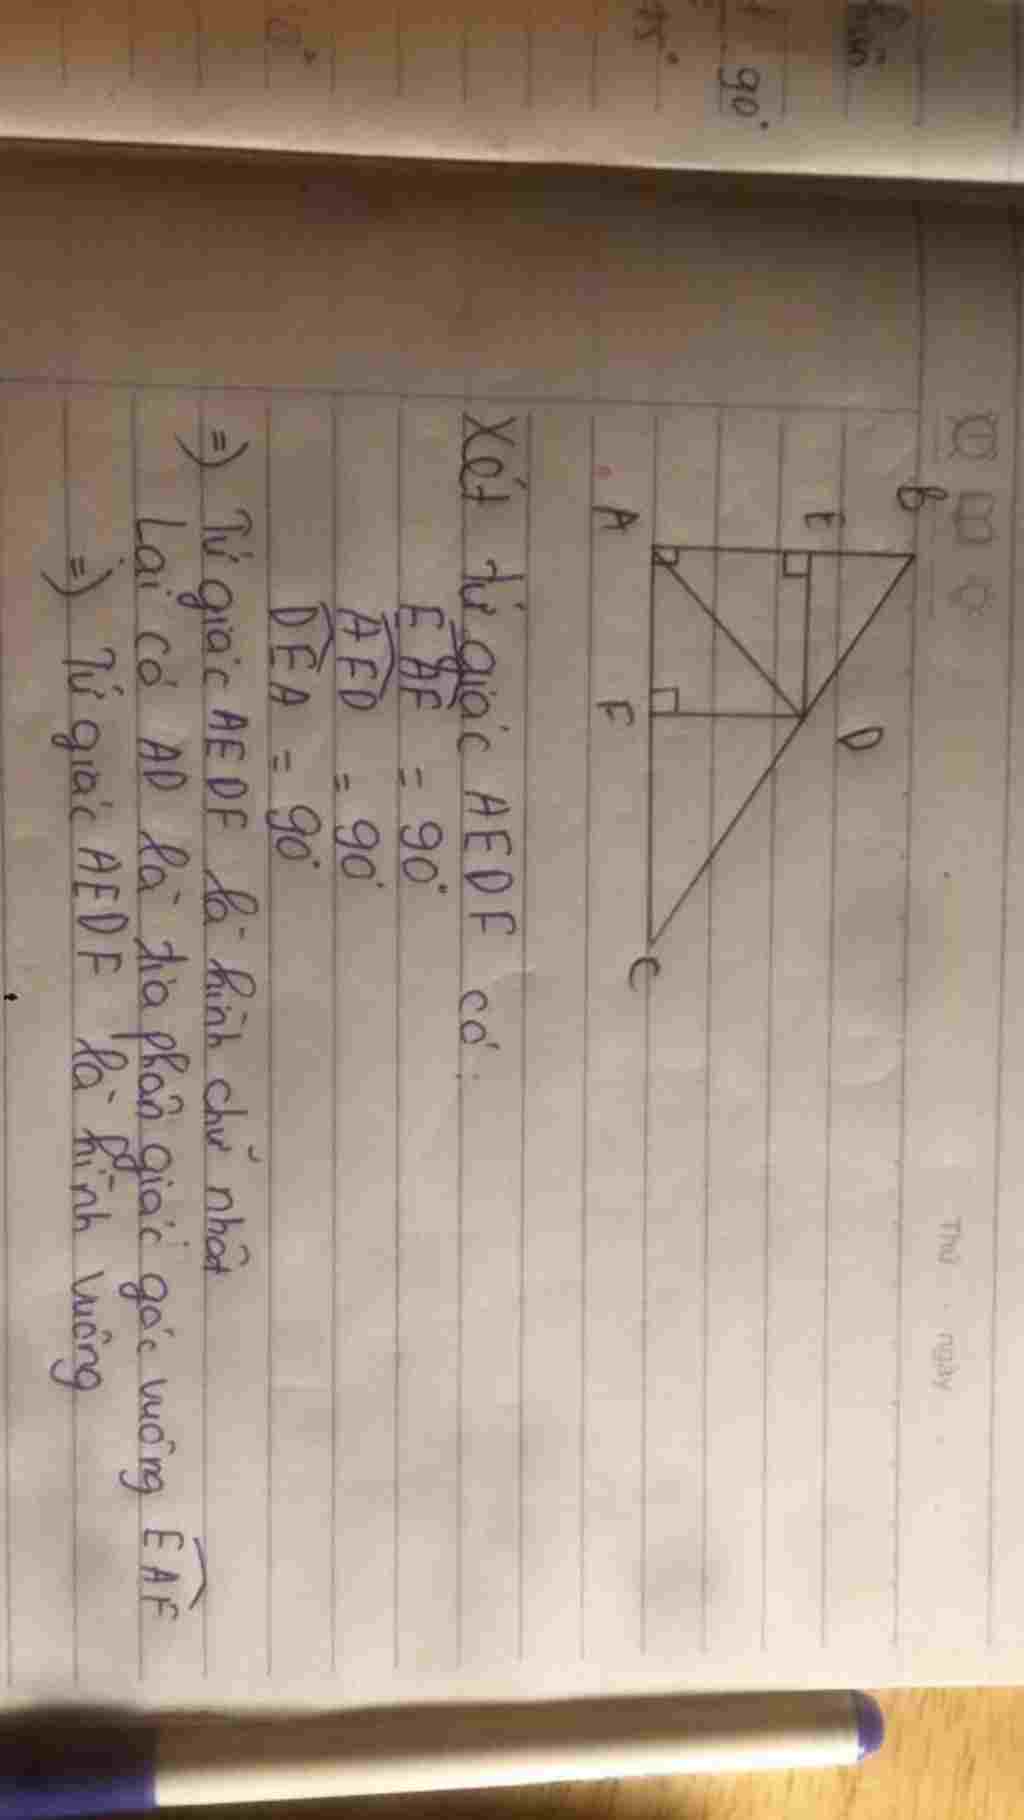 Thứ ngày
B
E
D
A
F
C
Xét tứ giác AEDF có:
EAF = 90°
AED = 90°
DEA = 90°
=) Tứ giác AEDF là hình chữ nhật
Lại có AD là tia phân giác góc vuông EAF
=) Tứ giác AEDF là hình vuông
90°